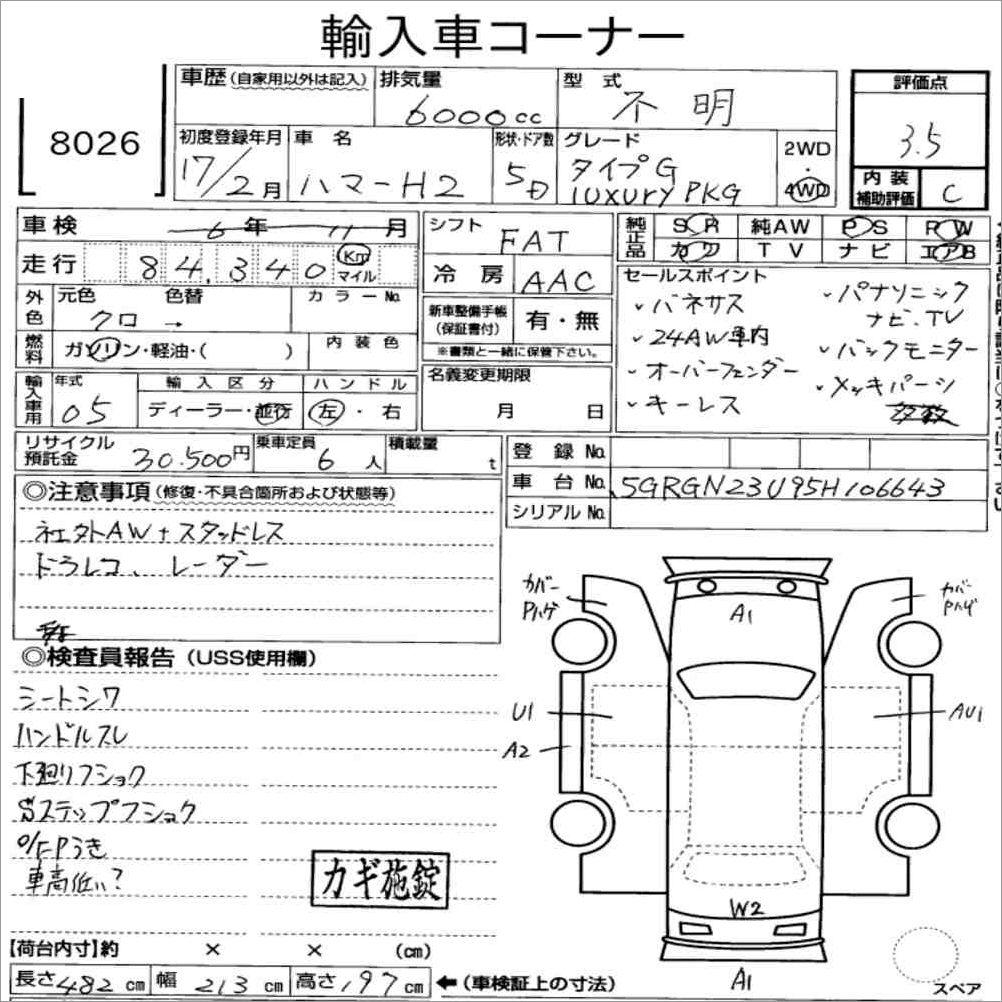 輸入車コーナー
8026
車歴(自家用以外は記入)
排気量
6000cc
型 式
不 明
評価点
3.5
初度登録年月
17/2月
車 名
ハマーH2
形状・ドア数
5D
グレード
タイプG
LUXURY PKG
2WD
・
4WD
内 装
補助評価
C
車検 6 年 11 月
シフト
FAT
純正品
SR 純AW PS PW
カワ TV ナビ エアB
走行 84,340 Km
マイル
冷 房
AAC
セールスポイント
・バネサス
・24AW車内
・オーバーフェンダー
・キーレス
・パナソニック
ナビ.TV
・バックモニター
・メッキパーツ
多数
外色
元色 色替
クロ →
カラーNo.
新車整備手帳
(保証書付)
有・無
※書類と一緒に保管下さい。
燃料
ガソリン・軽油・( )
内 装 色
輸入車用
年式
05
輸 入 区 分
ディーラー・並行
ハ ン ド ル
左・右
名義変更期限
月 日
リサイクル
預託金
30.500円
乗車定員
6 人
積載量
t
登 録 No.
車 台 No. 5GRGN23U95H106643
シリアル No.
◎注意事項(修復・不具合箇所および状態等)
社外AW+スタッドレス
ドラレコ、レーダー
◎検査員報告(USS使用欄)
シートシワ
ハンドルスレ
下廻りフショク
Sステップフショク
O/FPうき
車高低い?
カギ施錠
カバー
Pハゲ
カバー
Pハゲ
A1
U1
A2
AU1
W2
A1
スペア
【荷台内寸】約 × × (cm)
長さ 482 cm 幅 213 cm 高さ 197 cm ←(車検証上の寸法)